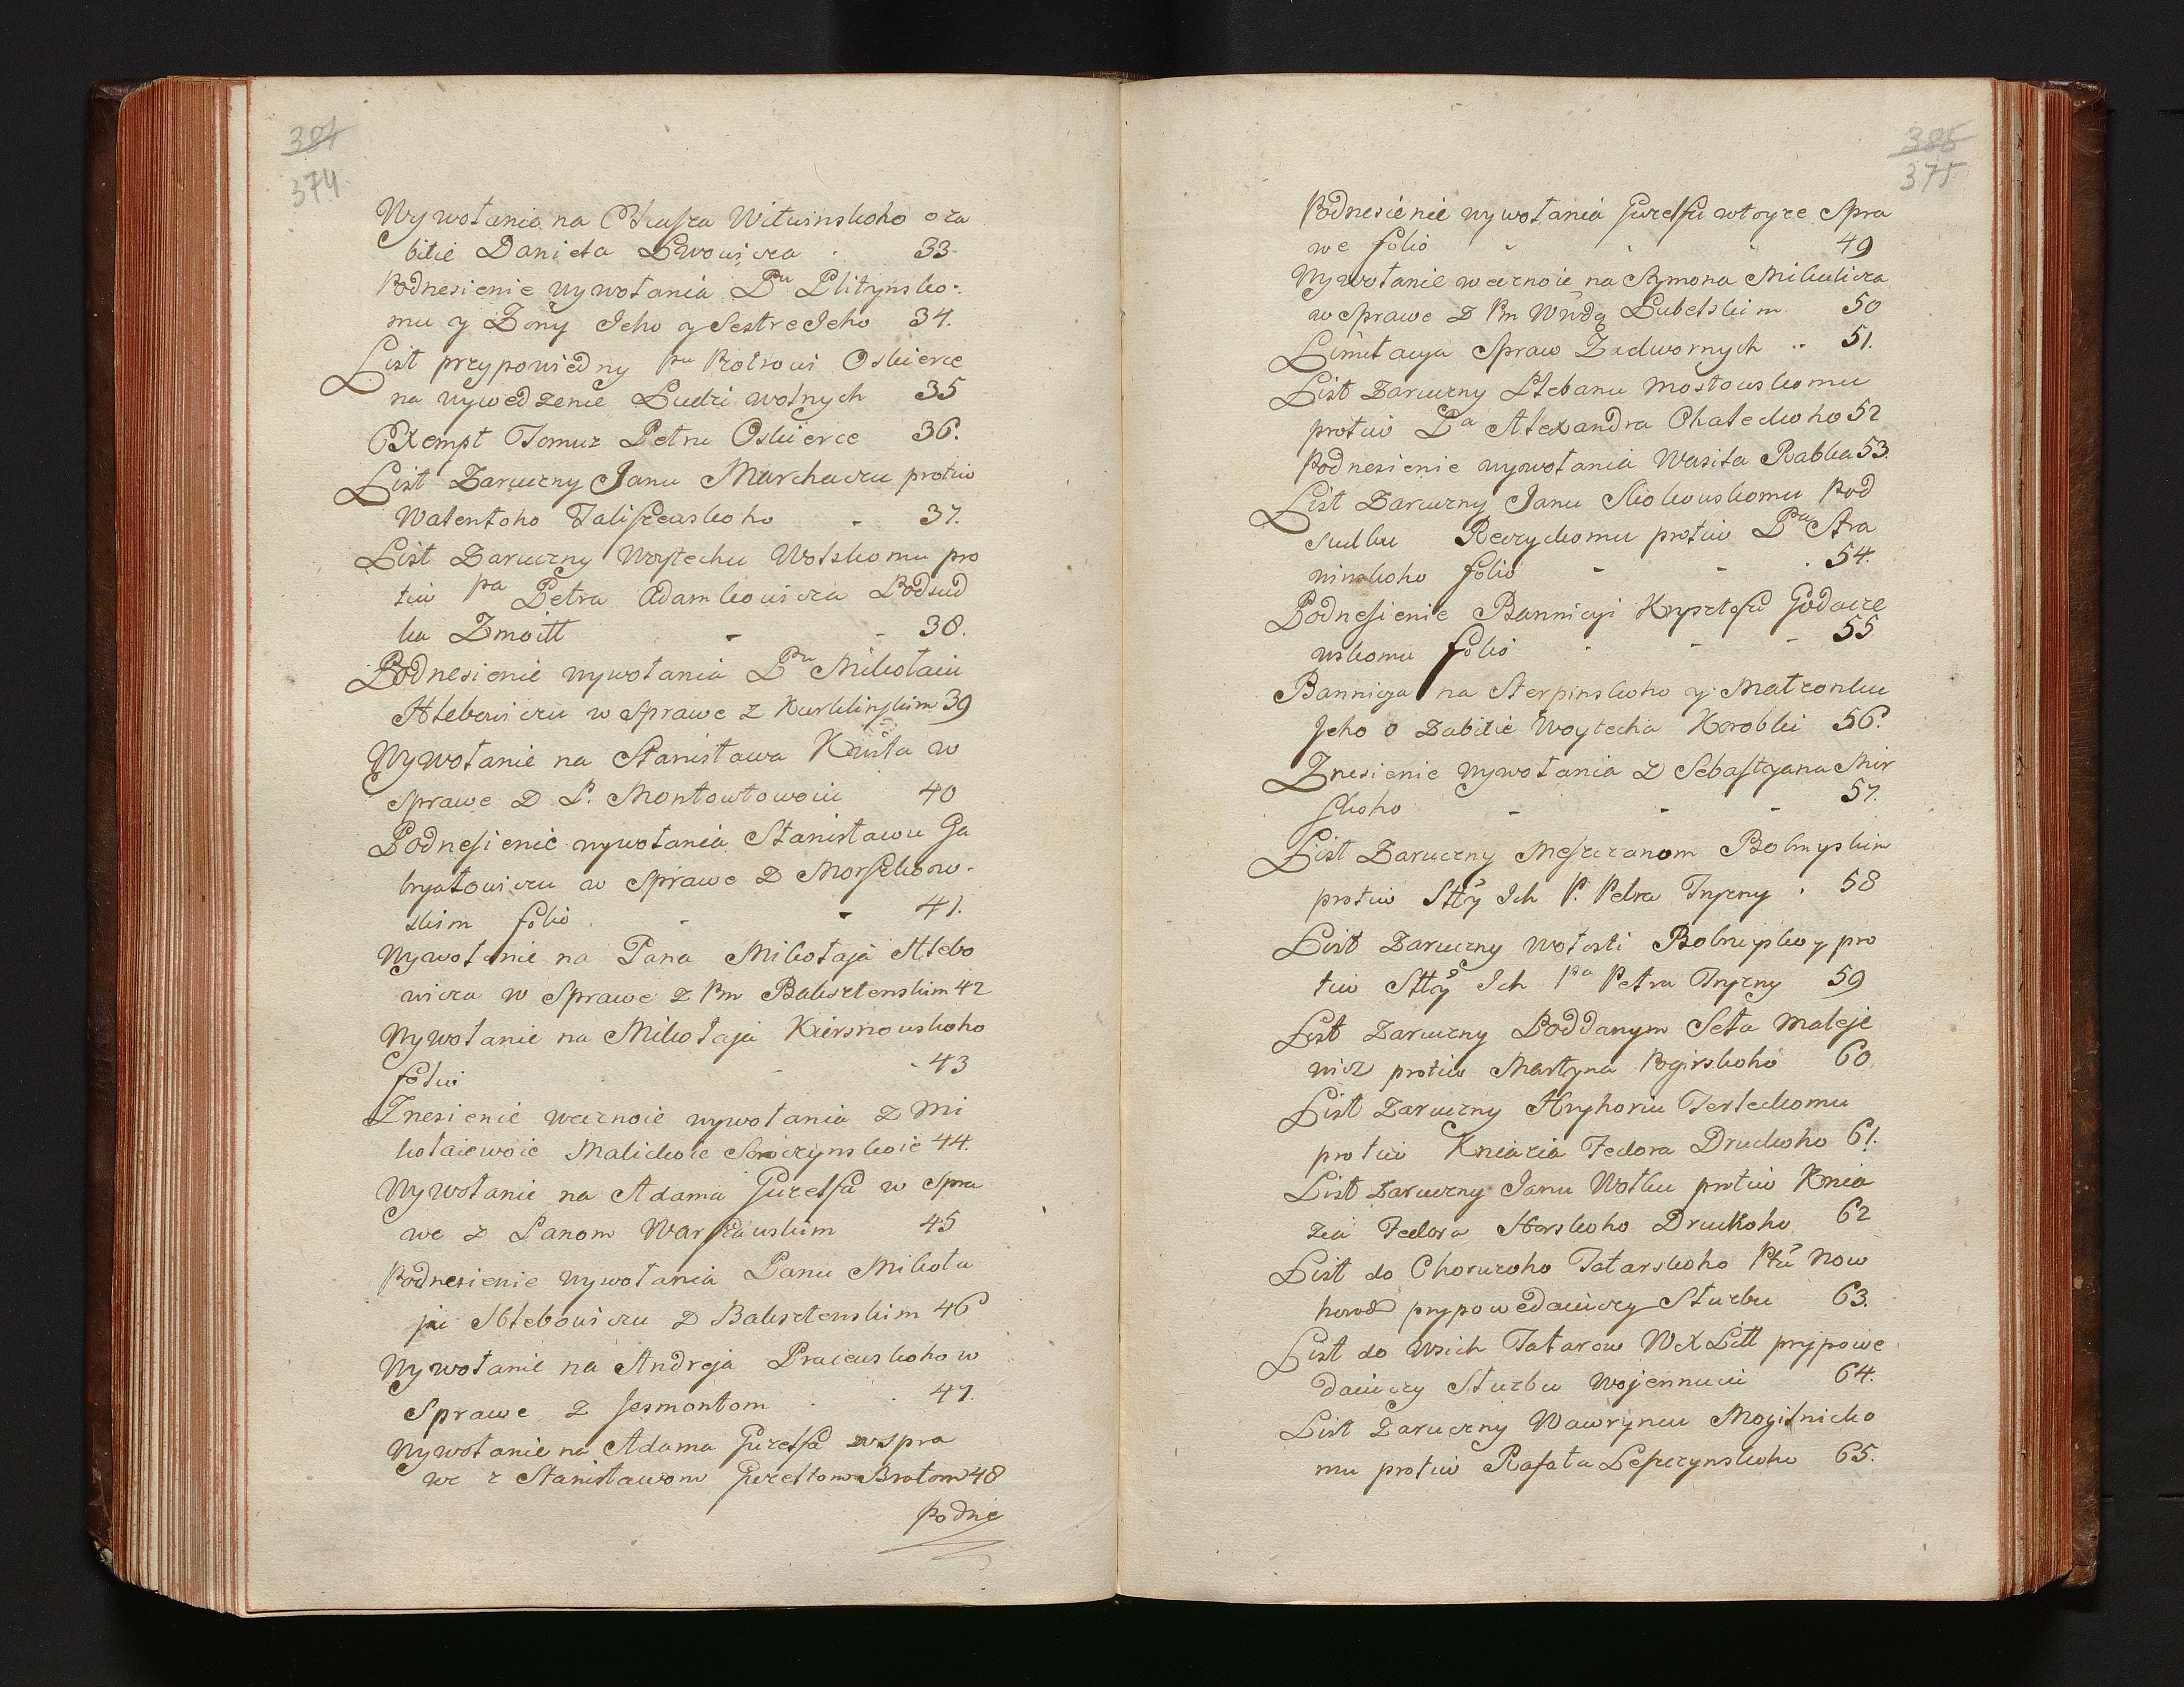 384
374
Wywołanie na Ołuſza Witwinskoho o za
bitie Danieła Lwowicza 33
Podnesienie wywołania Pu Plitynsko-
mu y Zony Jeho y Sestre Jeho 34.
List przypowiedny Pu Piotrowi Oskierce
na wywedzenie Ludzi wolnych 35
Exempt Tomuz Petru Oskierce 36.
List Zaruczny Janu Marchaczu protiw
Walentoho Taliſzewskoho - 37.
List Zaruczny Woytechu Wolskomu pro
tiw Pa Petra Adamkowicza Podsud
ka Zmoitt - - 38.
Podnesienie wywołania Pu Mikołaiu
Hlebowiczu w Sprawe z Kurklinſkim 39
Wywołanie na Stanisława w
Sprawe z P. Montowtowoiu 40
Podneſienie wywołania Stanisławu Ga
bryałowiczu w Sprawe z Morſzkow-
skim folio - - 41.
Wywołanie na Pana Mikołaja Hlebo
wicza w Sprawe z Pm Baksztenskim 42
Wywołanie na Mikołaja Kiersnowskoho
foliu - - 43
Znesienie wecznoie wywołania z Mi
kołaiewoie Malickoie Soroczynskoie 44.
Wywołanie na Adama Guzelfa w Spra
we z Panom Warſzawskim 45
Podnesienie wywołania Panu Mikoła
ju Hlebowiczu z Baksztenskim 46
Wywołanie na Andreja Pracewskoho w
Sprawe z Jesmontom . . 47.
Wywołanie na Adama Guzelfa w spra
we z Stanisławom Guzelfom Bratom 48
Podnie
385
375
Podnesienie wywołania Guzelfu w toyze Spra
we folio - - - 49
Wywołanie wecznoie na Szymona Mikulicza
w Sprawe z Pm Wwdą Lubelskim 50
Limitacya Spraw Zadwornych .. 51.
List Zaruczny Plebanu Mostowskomu
protiw Pa Alexandra Chaleckoho 52
Podnesienie wywołania Wasila Rabka 53.
List Zaruczny Janu Skokowskomu Pod
sudku Reczyckomu protiw Pu Stra
winskoho folio - - . 54.
Podneſienie Bannicyi Krysztofu Godacze
wskomu folio - - - 55
Bannicya na Sterpinskoho y Matzonku
Jeho o zabitie Woytecha Korobki 56.
Znesienie wywołania z Sebaſtyana Mir
ſkoho - - - 57.
List Zaruczny Meſzczanom Bobruyskim
protiw Stty Ich P. Petra Tryzny . 58
List Zaruczny Wołosti Bobruyskoy pro
tiw Stty Ich Pa Petra Tryzny 59
List Zaruczny Poddanym Seła Maleje
wicz protiw Martyna Pogirskoho 60.
List Zaruczny Hryhoriu Terleckomu
protiw Kniazia Fedora Druckoho 61.
List Zaruczny Janu Wołku protiw Knia
zia Fedora Horskoho Druckoho 62
List do Choruzoho Tatarskoho Pttu Now
horod prypowedaiuczy Służbu 63.
List do Wsich Tatarow W X Litt prypowe
daiuczy Służbu Wojennuiu 64.
List Zaruczny Wawryncu Mogilnicko
mu protiw Rafała Leſzczynskoho 65.